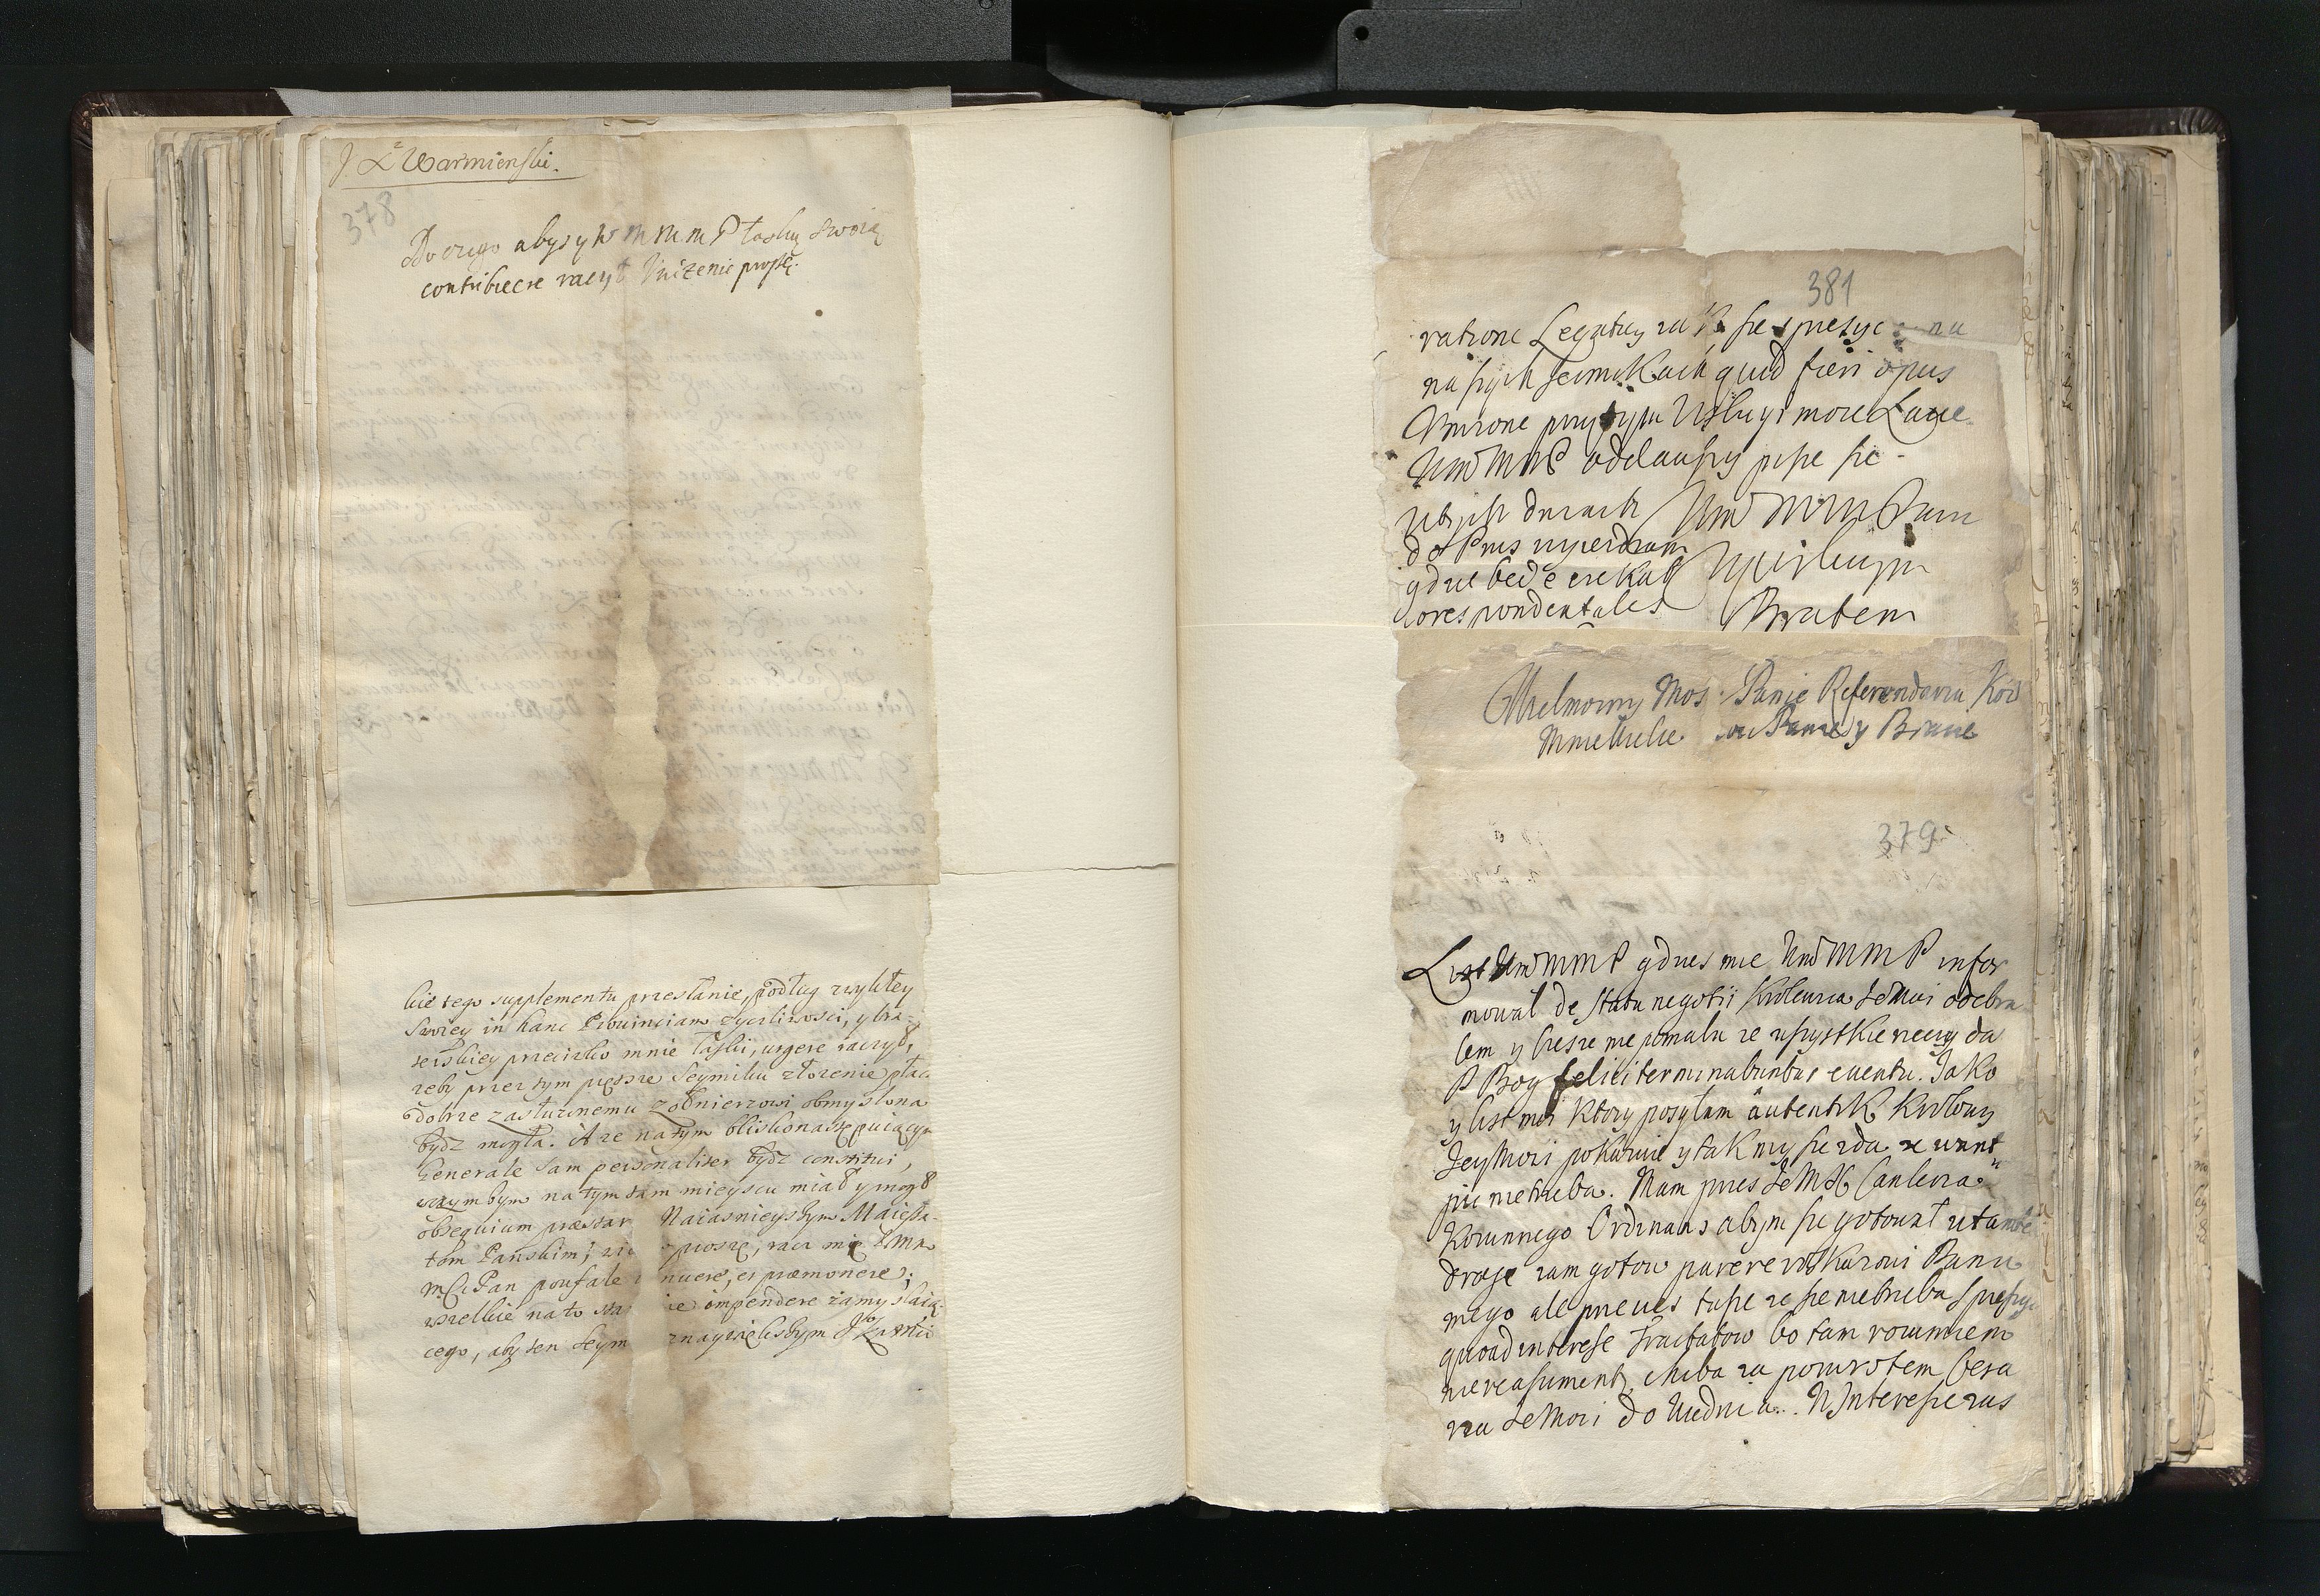 J X Warmienski.
378
Do czego abyś y W M M m P łaskę swoię
contribuere raczył uniżenie proszę.
kie tego supplementu przesłanie, podług zwykłey
swoiey in hanc Prouinciam życzliwości, y bra-
terskiey przeciwko mnie łaski, urgere raczył,
żeby przez tym prętsze Seymiku złożenie płaca
dobrze zasłużonemu Żołnierzowi obmyślona
bydz mogła. A że na tym blisko następuiącym
Generale sam personaliter bydz constitui,
w czym bym na tym tam mieyscu miał y mogł
obsequium præstare Naiasnieyszym Maiesta-
tom Pańskim, proszę, racz mię WM
m Pan poufale et præmonere;
wszelkie na to impendere zamyslaią-
cego, aby ten Seym znaywiększym JKMci
381
ratione Legatury za K sie spieszyc na
naszych seimikach quid fieri opus
Umizone przytym Usługi moie Łasce
Um MMP oddawszy pisze sie
w tych dniach Um M M Pana
do Prus wyiezdzam
gdzie bede czekał uprzeimym
Corespondentales Bratem
Wielmozny Mos. Panie Referendarzu Kor
Mnie Wielce Panie y Bracie
379
List Um MMP gdzies mie Um MMP infor
mowal de statu negotii Krolewica JeMci odebra
lem y ciesze nie pomalu ze wszystkie rzeczy da
P Bog feliciterminabuntur euentu. Jako
y list moi ktory posyłam autentik Krolowy
Jey Mosci pokazuie y tak my sie zda ze want
pic nie trzeba. Mam przes JeMX Canlerza
Korunnego Ordinans abym sie gotowal w tamte
droge iam gotow parere roskazowi Panu
mego ale przecies tusze ze sie nie trzeba spieszyc
quoad interese Tractatow bo tam rozumiem
niereasumentz chiba za powrotem Cesa
rza JeMosci do Wiednia. W Interesie zas